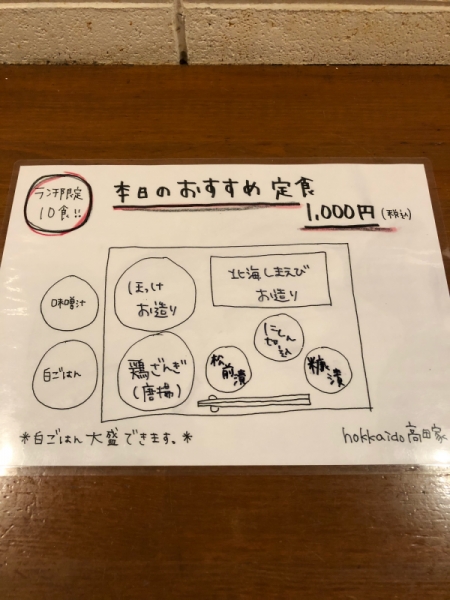 ランチ限定
10食!!
本日のおすすめ定食
1,000円(税込)
味噌汁
白ごはん
ほっけ
お造り
北海しまえび
お造り
鶏ざんぎ
(唐揚)
松前漬
にしん
切込
糠漬
*白ごはん大盛できます。*
hokkaido高田家